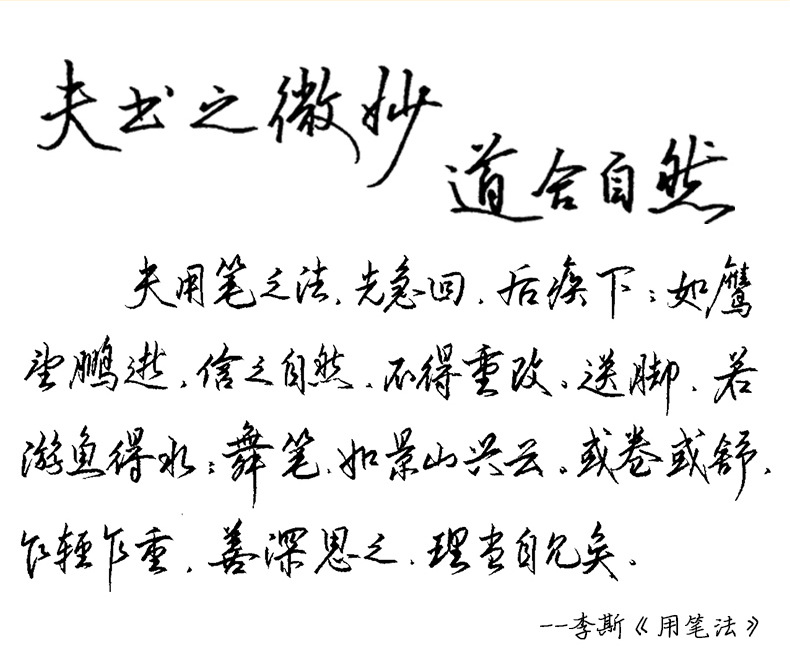 夫书之微妙
道合自然
夫用笔之法,先急回,后疾下;如鹰
望鹏逝,信之自然,不得重改。送脚,若
游鱼得水;舞笔,如景山兴云。或卷或舒,
乍轻乍重,善深思之,理当自见矣。
--李斯《用笔法》